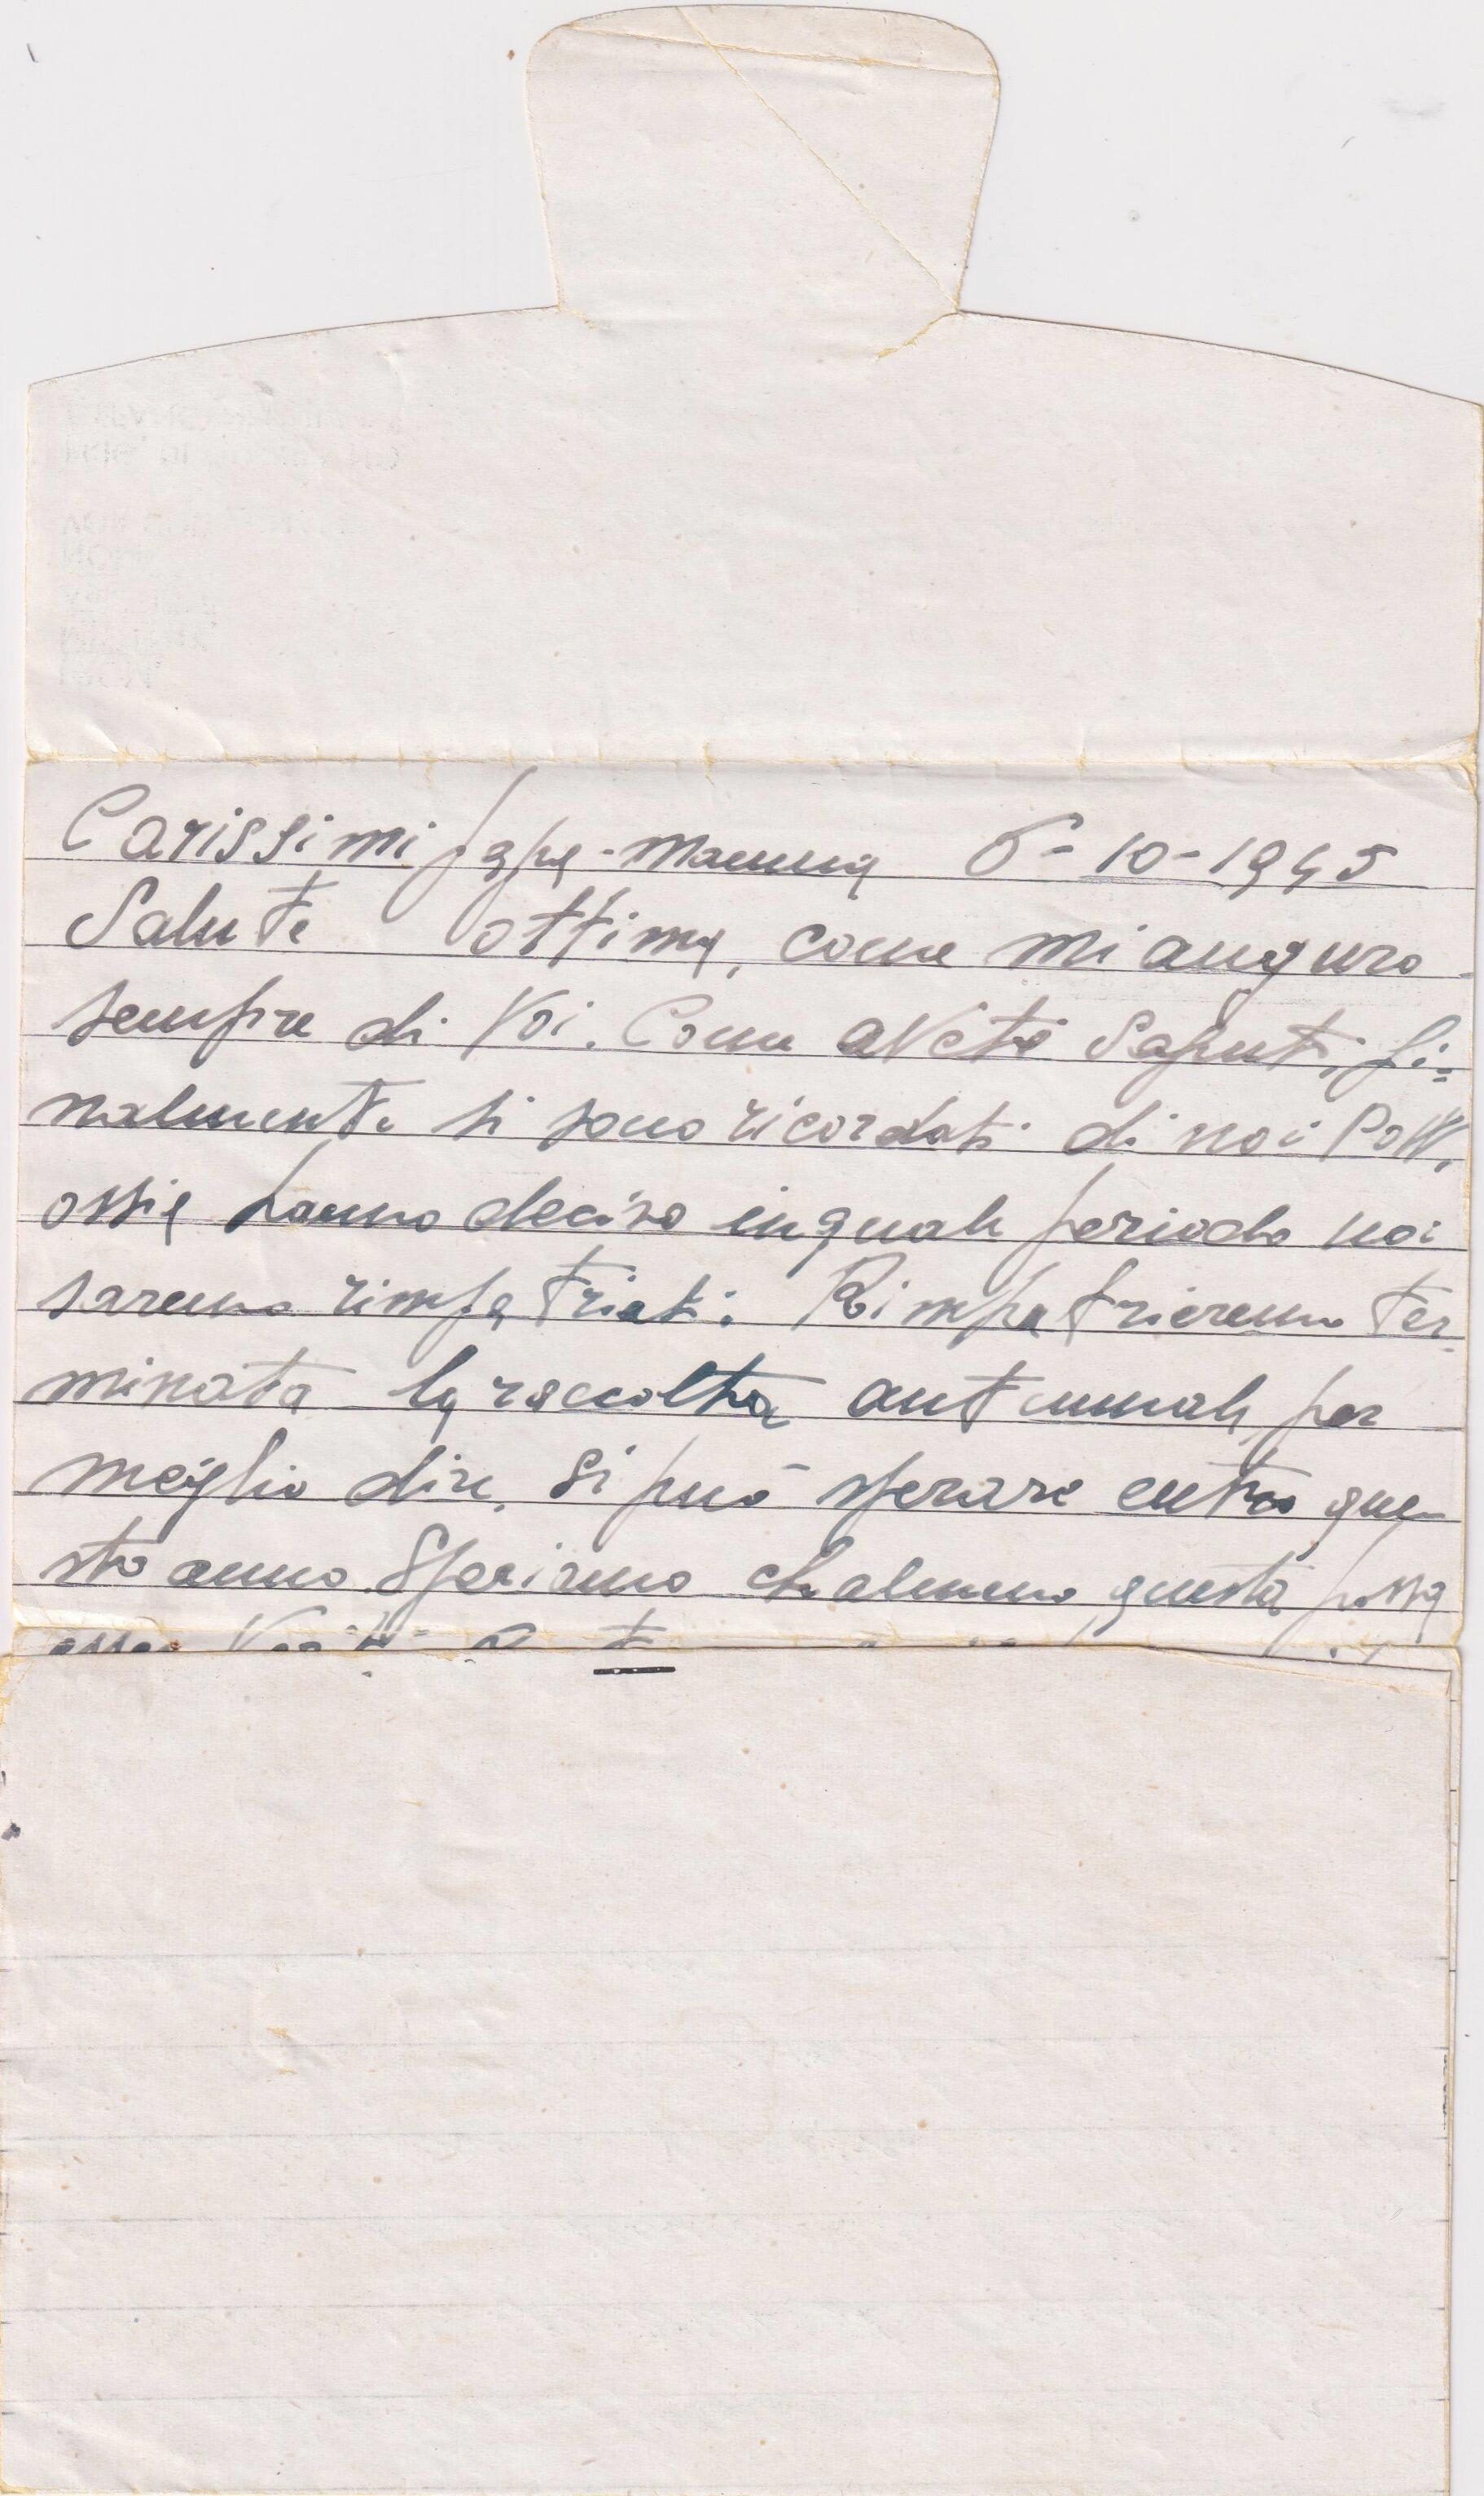 Carissimi papà-mamma 6-10-1945
Salute ottima, come mi auguro
sempre di Voi. Come avete saputo, fi=
nalmente si sono ricordati di noi PoW,
ossia hanno deciso in quale periodo noi
saremo rimpatriati. Rimpatrieremo ter-
minata la raccolta autunnale, per
meglio dire, si può sperare entro que-
sto anno. Speriamo che almeno questa possa